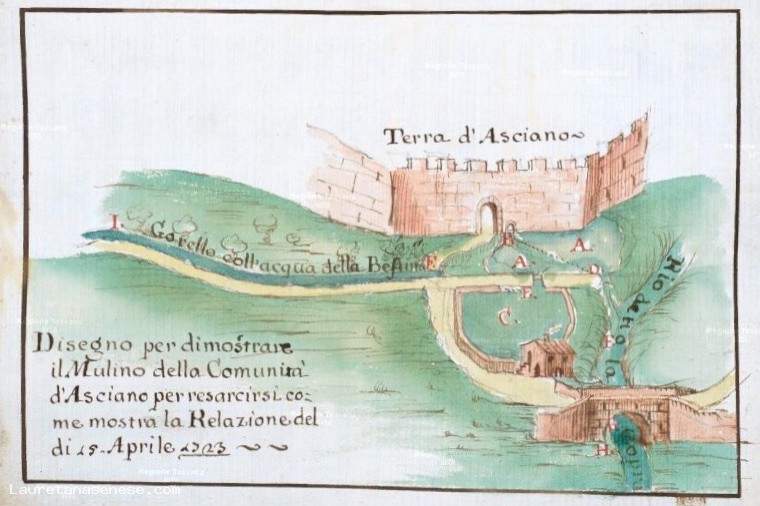 Terra d'Asciano
I.
Gorello coll'acqua della Bestina
E.
B
A.
A.
D
F.
C.
Rio detto la
Disegno per dimostrare
il Mulino della Comunità
d'Asciano per resarcirsi co=
me mostra la Relazione del
di 15. Aprile 1723
H.
Lauretanasenese.com